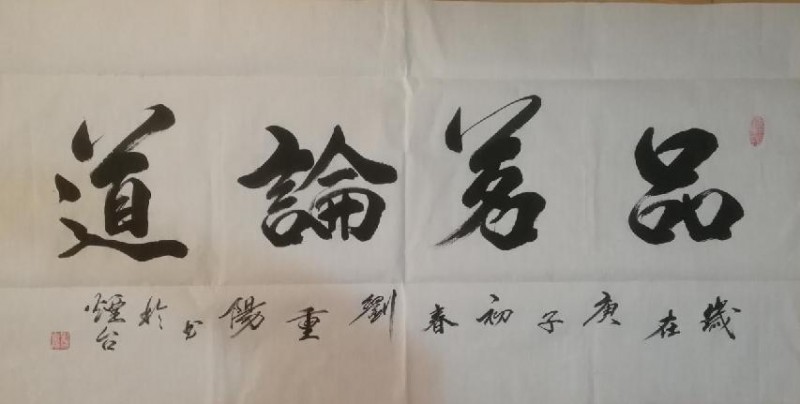 品茗論道
歲在庚子初春劉重陽书於煙台